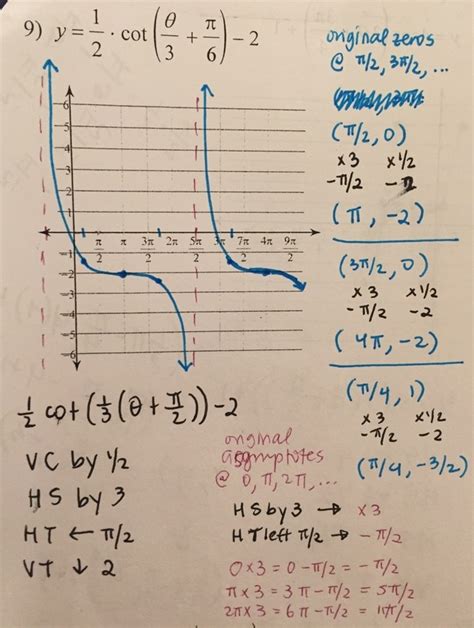 9) y = 1/2 · cot(θ/3 + π/6) − 2
original zeros
@ π/2, 3π/2, ...
(π/2, 0)
x3 x1/2
−π/2 −2
(π, −2)
(3π/2, 0)
x3 x1/2
−π/2 −2
(4π, −2)
(π/4, 1)
x3 x1/2
−π/2 −2
(π/4, −3/2)
6
5
4
3
2
1
−1
−2
−3
−4
−5
−6
π/2 π 3π/2 2π 5π/2 7π/2 4π 9π/2
1/2 cot(1/3(θ + π/2)) − 2
VC by 1/2
HS by 3
HT ← π/2
VT ↓ 2
original
asymptotes
@ 0, π, 2π, ...
HS by 3 → x3
HT left π/2 → −π/2
0 x 3 = 0 − π/2 = −π/2
π x 3 = 3π − π/2 = 5π/2
2π x 3 = 6π − π/2 = 11π/2